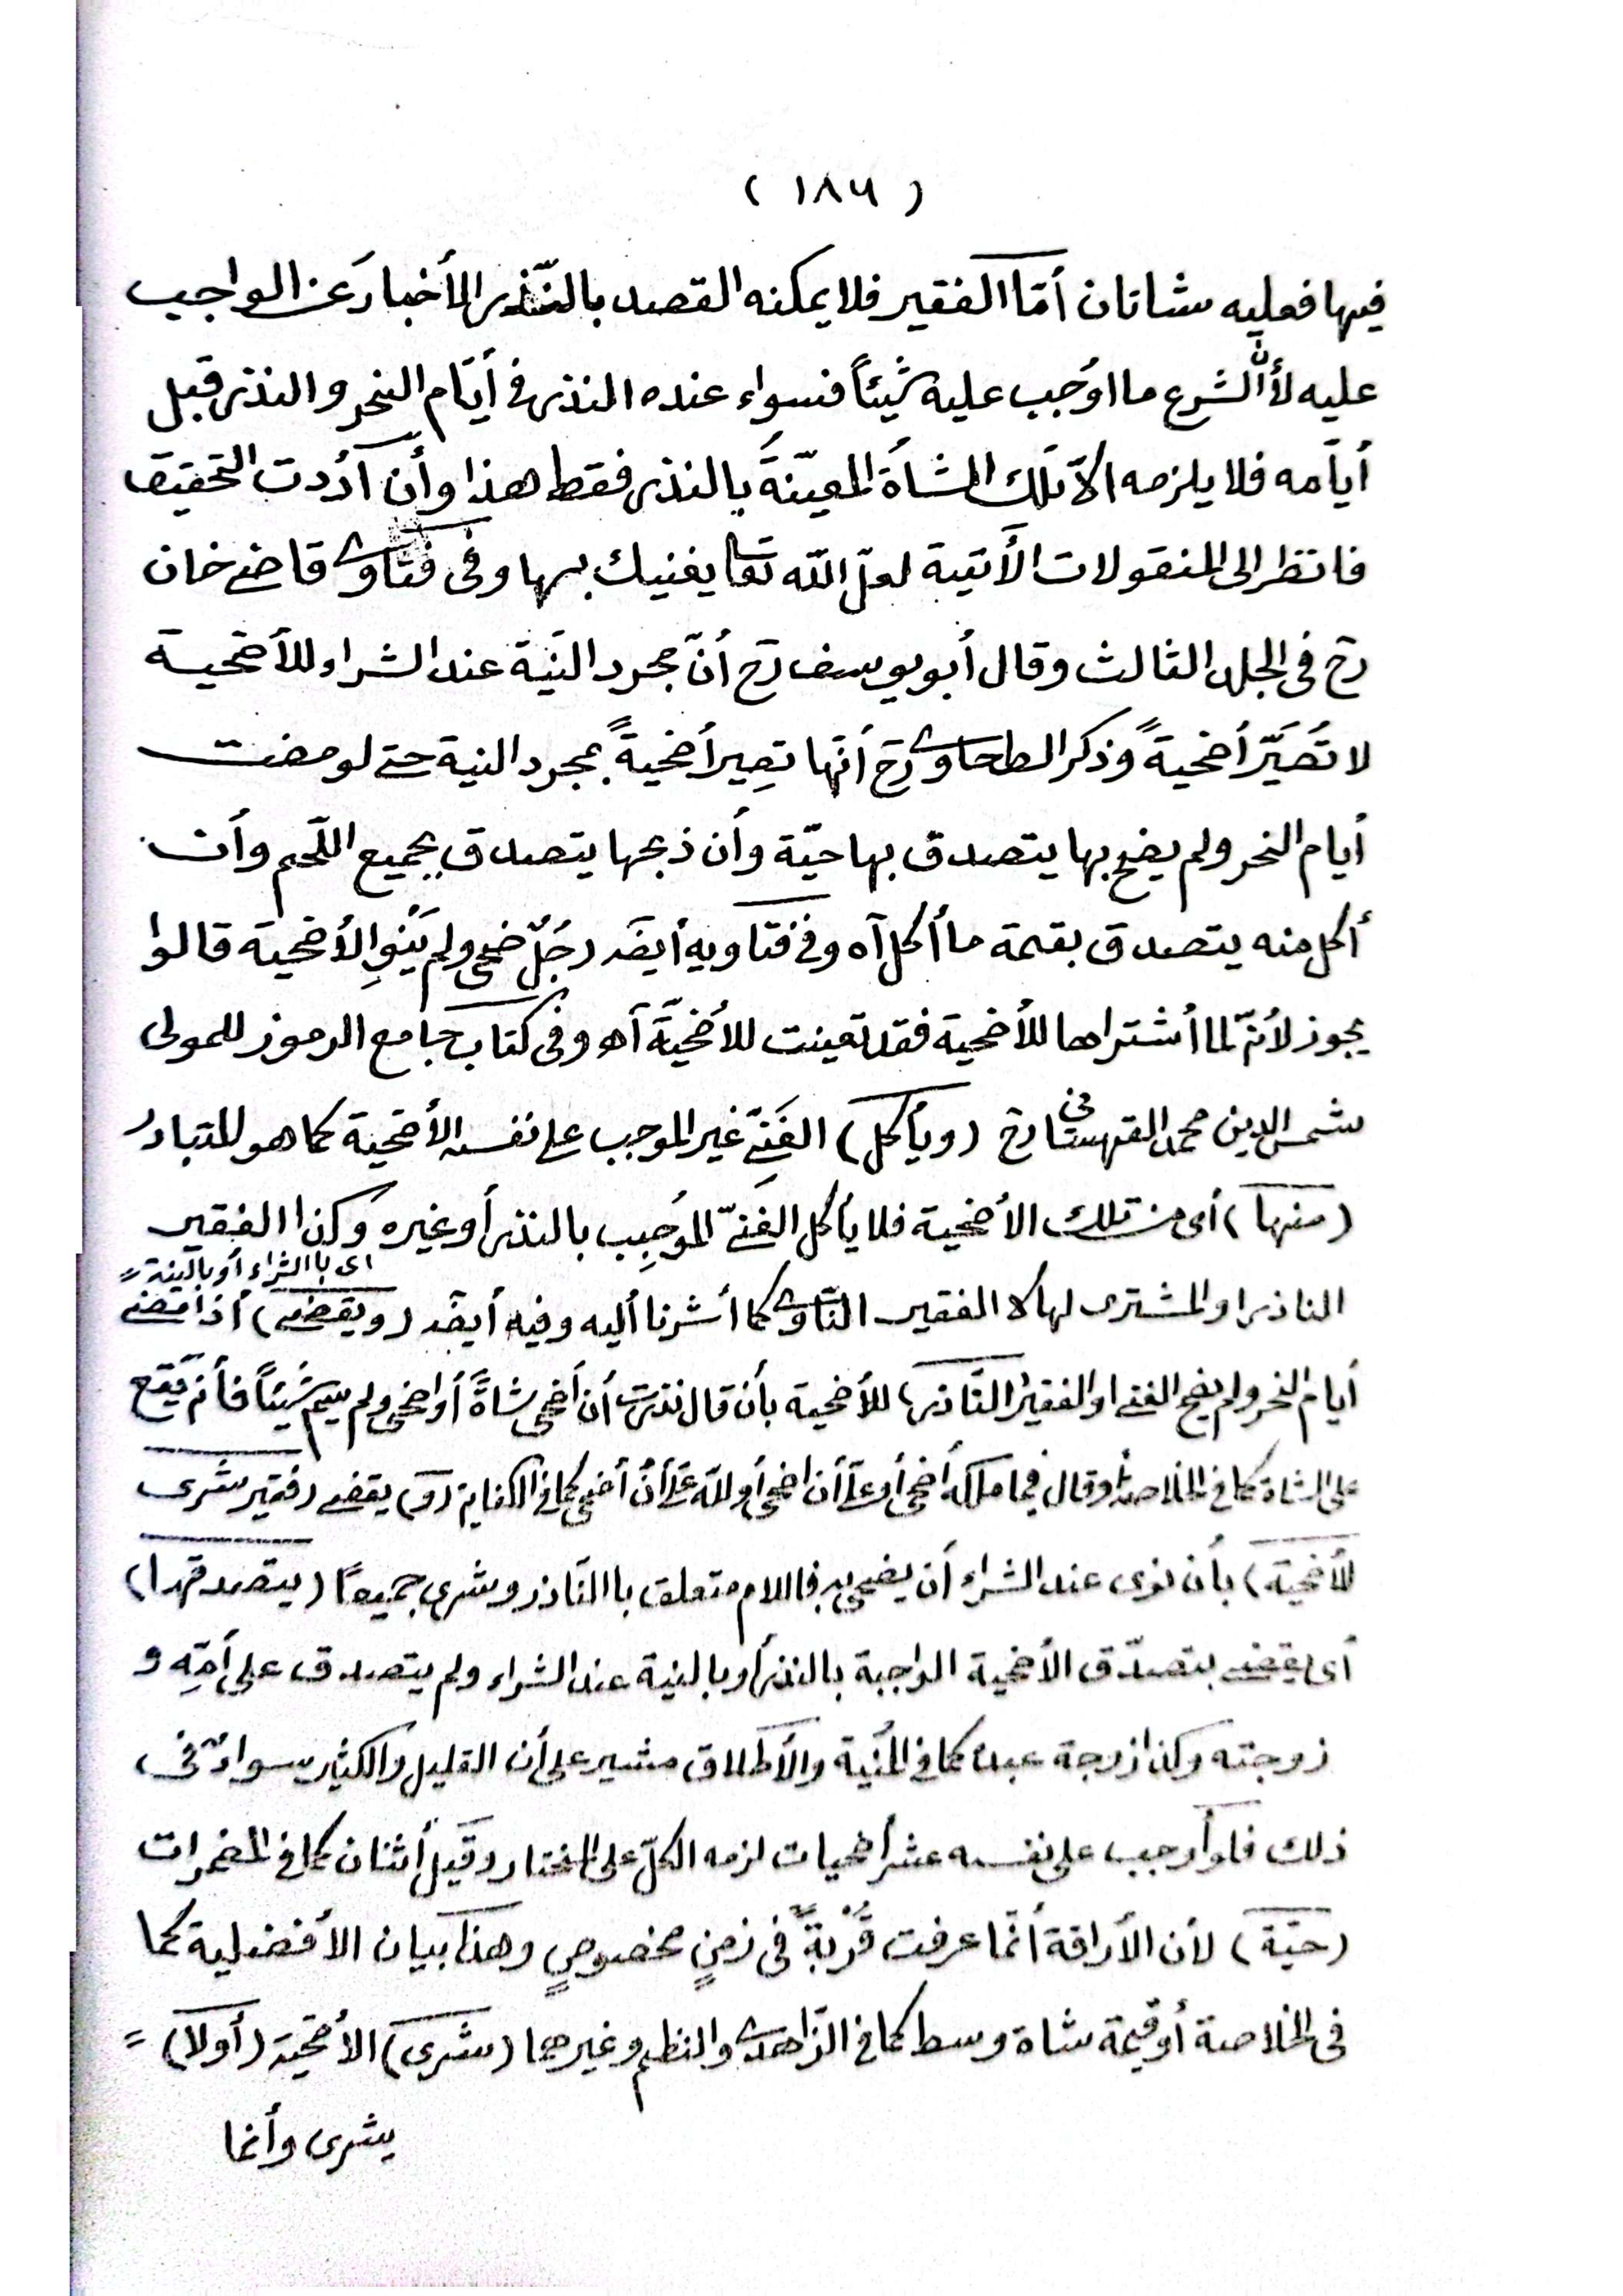 ( ١٨٦ )
فيها فعليه شاتان أمّا الفقير فلا يمكنه القصد بالنّذر الأخبار عن الواجب
عليه لأنّ الشرع ما اوجب عليه شيئاً فسواء عنده النذر فى أيّام النحر والنذر قبل
أيامه فلا يلزمه الاّ تلك الشاة المعيّنة بالنذر فقط هذا وأن أردت التحقيق
فانظر الى المنقولات الأتية لعلّ الله تعا يغنيك بها وفى فتاوى قاضى خان
رح فى الجلد الثالث وقال أبو يوسف رح أنّ مجرد النيّة عند الشراء للأضحية
لا تُصَيّر أضحيةً وذكر الطحاوى رح أنّها تصير أضحيةً بمجرد النية حتى لو مضت
أيام النحر ولم يضح بها يتصدق بها حيّة وأن ذبحها يتصدق بجميع اللّحم وأن
أكل منه يتصدق بقيمة ما أكل آه وفى فتاويه أيضَ رجُلٌ ضحى ولم يَنْوِ الأضحية قالوا
يجوز لأنّه لما أشتراها للأضحية فقد تعينت للأضحيّة آه وفى كتاب جامع الرموز للمولى
شمس الدين محمد القهستانى رح (ويأكل) الغَنِىّ غير الموجب على نفسه الأضحية كما هو المتبادر
(منها) أى من تلك الأضحية فلا يأكل الغَنىّ الموُجِب بالنذر أو غيره وكذا الفقير
اى باالشراء أو بالنية =
الناذر او المشترى لها لا الفقير النّاوى كما أشرنا أليه وفيه أيضَ (ويقضى) أذا مضى
أيام النحر ولم يضح الغنى او الفقير (النّاذر) للأضحية بأن قال نذرت أن أضحى شاةً أو اضحى ولم يسم شيئاً فأنه يقع
على الشاة كما فى الخلاصة أو قال فيما ملكه أضحى أو علىّ أن اضحى أو لله علىّ أنْ أضحى كما فى الكفاية (و) يقضى (فقير شرى
للأضحية) بأن نوى عند الشراء أن يضحى به فاللام متعلق باالنّاذر وشرى جميعًا (بتصدقها)
أى يقضى بتصدّق الأضحية الواجبة بالنذر أو بالنية عند الشراء ولم يتصدق على أمّه و
زوجته وكذا زوجة عبده كما فى المُنْية والأطلاق مشير على أن القليل والكثير سواء فى
ذلك فلو أوجب على نفسه عشر أضحيات لزمه الكلّ على المختار وقيل أثنان كما فى المضمرات
(حيّة) لأن الأراقة أنّما عرفت قُرْبةً فى زمنٍ مخصوصٍ وهذا بيان الأفضلية كما
فى الخلاصة أو قيمة شاة وسط كما فى الزّاهدى والنظم وغيرهما (شرى) الأضحية (أولا) =
يشرى وأنما